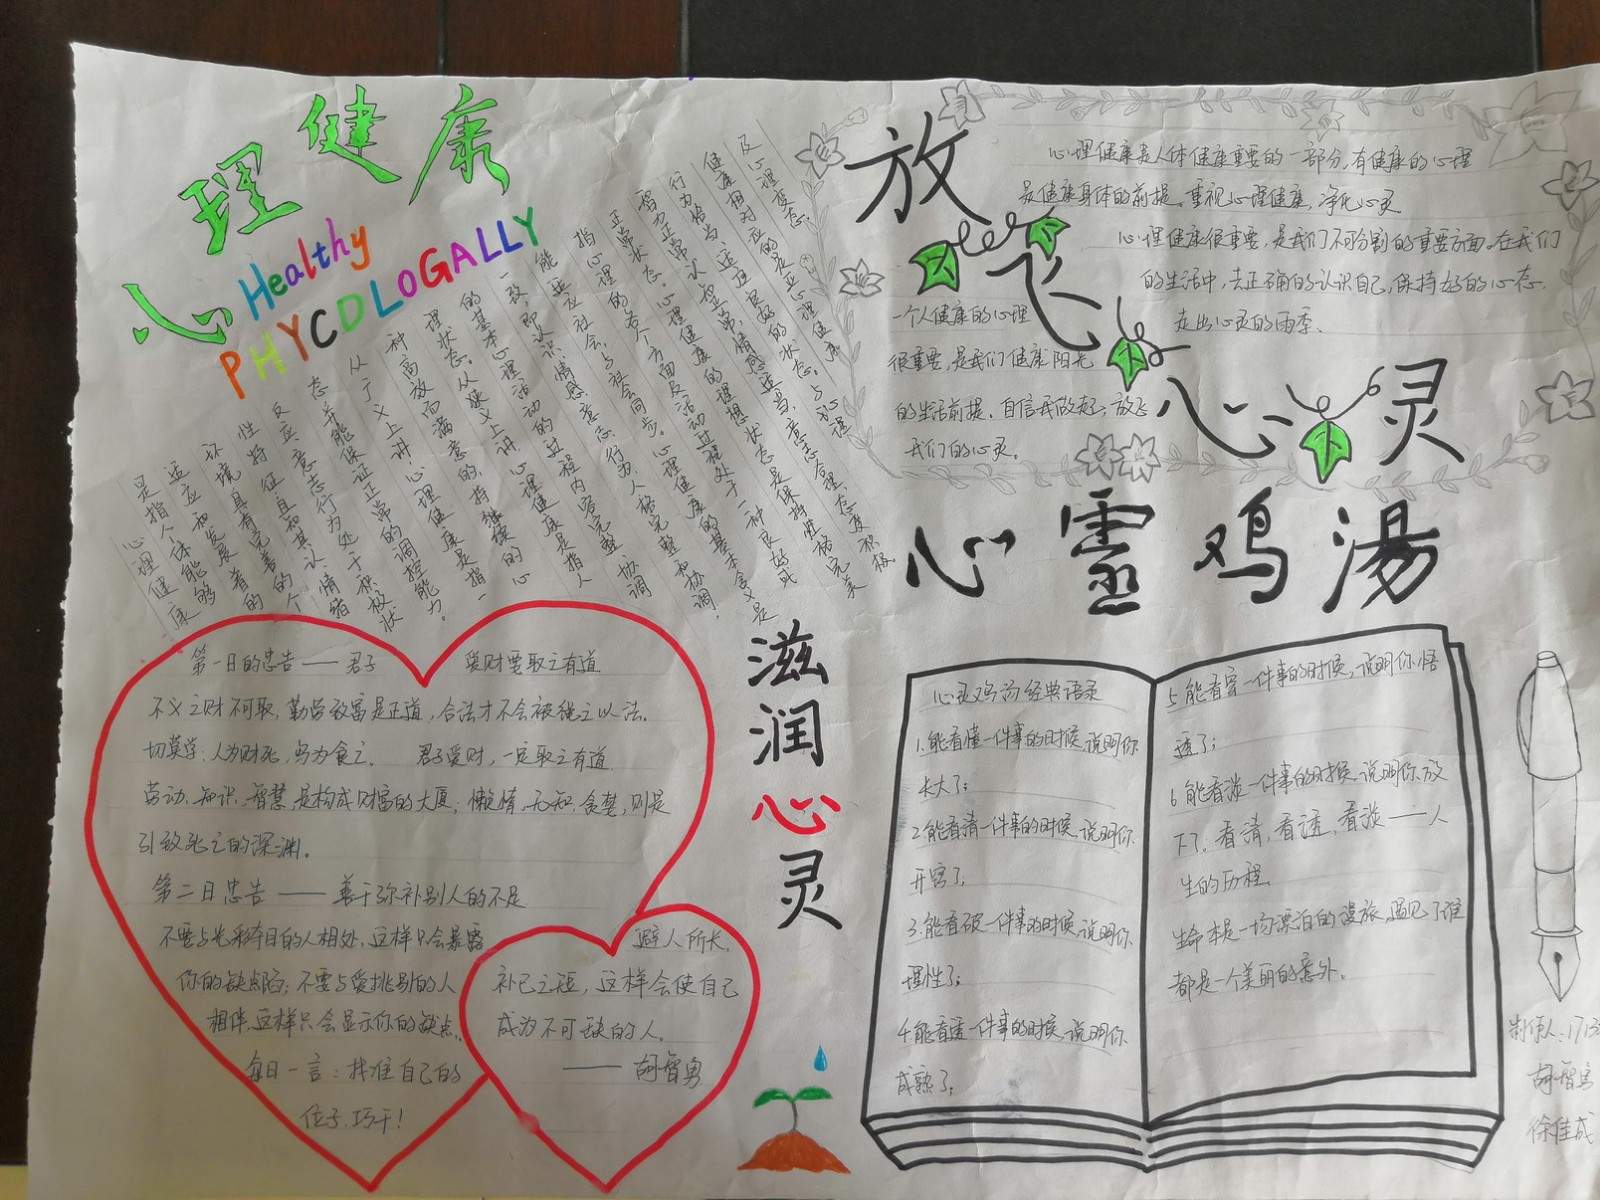 心理健康
Healthy
PHYCDLOGALLY
心理健康
是指个体能够
适应和发展着的
环境具有完善的个
性特征且和其认、情绪
反应、意志行为处于积极状
态并能保证正常的调控能力。
从广义上讲,心理健康是指一
种高效而满意的,持继续的心
理状态。从狭义上讲,心理健康是指人
的基本心理活动的过程内容完整、协调
一致,即认识、情感、意志、行为、人格完整和协调,
能适应社会,与社会同步。心理健康的基本含义是
指心理的各个方面及活动过程处于一种良好或
正常状态。心理健康的理想状态是保持性格完美
智力正常、认知正常、情感适当、意志合理、态度积极
行为恰当、适应良好的状态。与心理
健康相对应的是亚心理健康
及心理变态。
放飞心灵
心理健康是人体健康重要的一部分,有健康的心理
是健康身体的前提。重视心理健康,净化心灵
心理健康很重要,是我们不可分割的重要方面。在我们
的生活中,去正确的认识自己,保持好的心态.
走出心灵的雨季、
一个人健康的心理
很重要,是我们健康阳光
的生活前提。自信我做起,放飞
我们的心灵。
心靈鸡湯
滋润心灵
第一日的忠告——君子 爱财要取之有道
不义之财不可取,勤劳致富是正道,合法才不会被绳之以法.
切莫学:人为财死,鸟为食亡. 君子爱财,一定取之有道.
劳动、知识、智慧,是构成财富的大厦;懒惰、无知、贪婪,则是
引致死亡的深渊。
第二日忠告——善于弥补别人的不足
不要与光彩夺目的人相处,这样只会暴露
你的缺点陷;不要与爱挑剔的人
相伴,这样只会显示你的缺点.
每日一言:找准自己的
位子,巧干!
避人所长,
补己之短,这样会使自己
成为不可缺的人。
——胡智勇
心灵鸡汤经典语录
1.能看懂一件事的时候,说明你
长大了;
2.能看清一件事的时候,说明你
开窍了;
3.能看破一件事的时候,说明你
理性了;
4.能看透一件事的时候,说明你
成熟了;
5.能看穿一件事的时候,说明你悟
透了;
6.能看淡一件事的时候,说明你放
下了。看清,看透,看淡——人
生的历程.
生命本是一场漂泊的漫旅,遇见了谁
都是一个美丽的意外。
制作人:1713
胡智勇
徐佳成